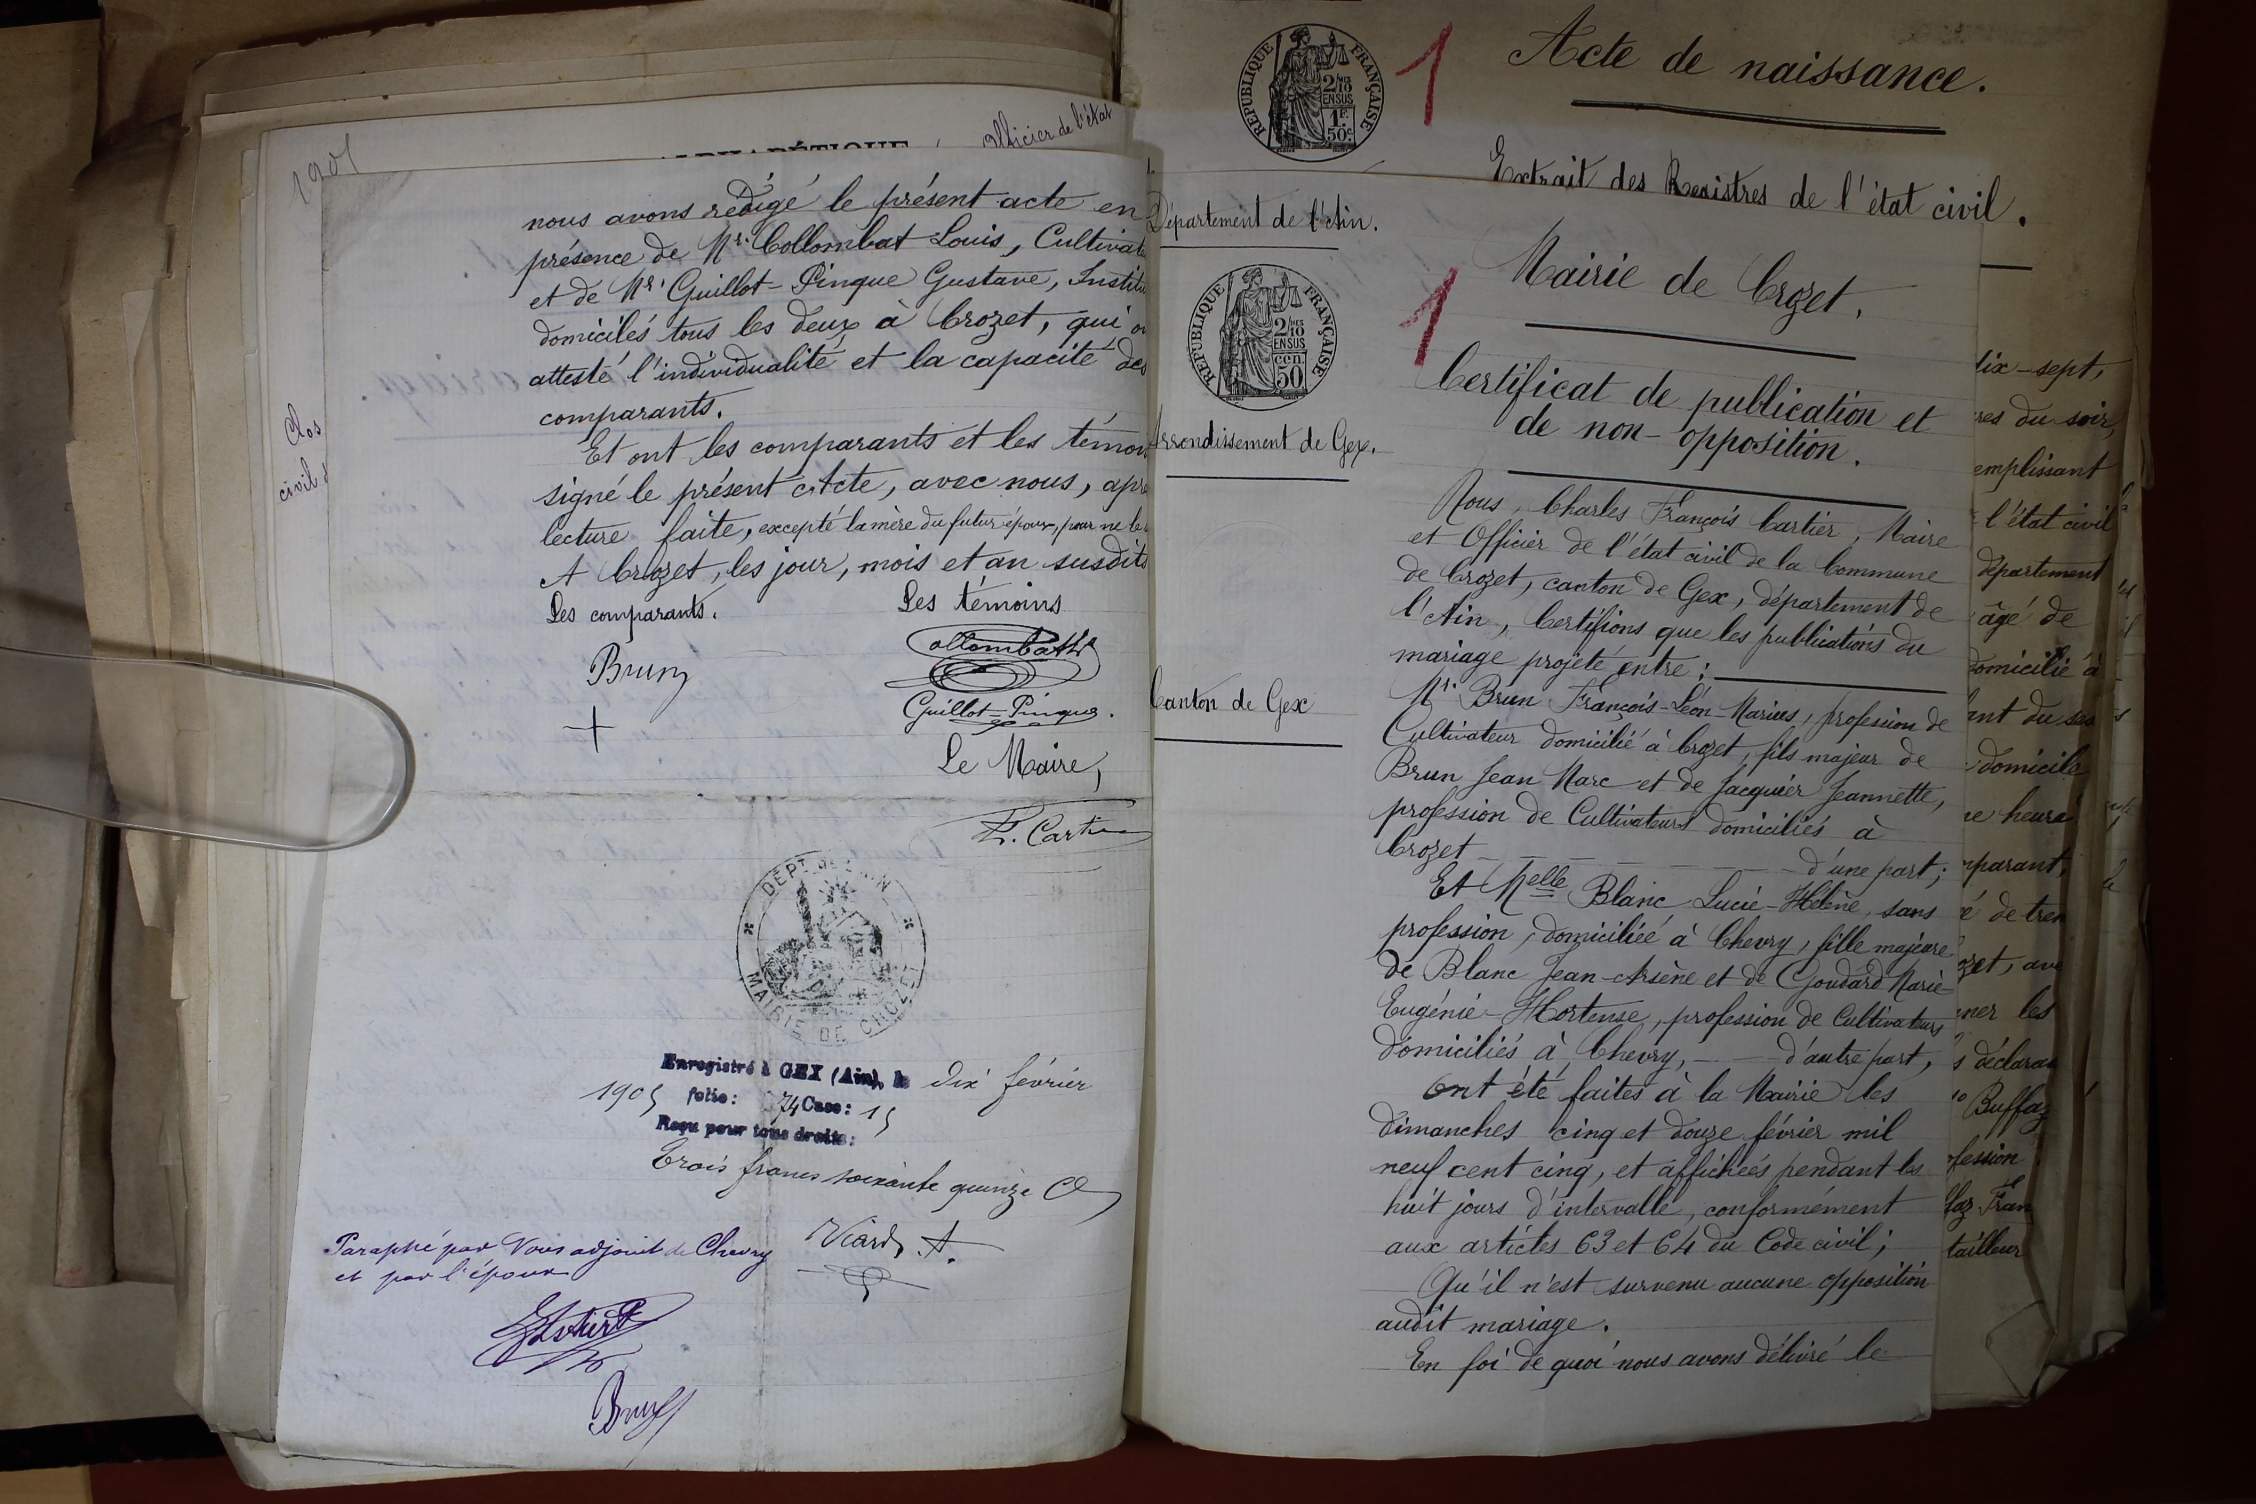 1905
ALPHABÉTIQUE
Officier de l'état
Clos
civil d
nous avons rédigé le présent acte en
présence de Mr. Collombat Louis, Cultivate
et de Mr. Guillot-Pingue Gustave, Institu
domiciliés tous les deux à Crozet, qui o
attesté l'individualité et la capacité des
comparants.
Et ont les comparants et les témoi
signé le présent Acte, avec nous, apr
lecture faite, excepté la mère du futur époux, pour ne le
A Crozet, les jour, mois et an susdits
Les comparants.
Les témoins
Brun
Collombat Ls
Guillot-Pingue.
Le Maire,
F. Cartier
DÉPT DE L'AIN
MAIRIE DE CROZET
Enregistré à GEX (Ain), le dix février
1905 folio: 74 Case: 15
Reçu pour tous droits:
Trois francs soixante quinze C
Viard A.
Paraphé par Nous adjoint de Chevry
et par l'époux
Brun
RÉPUBLIQUE FRANÇAISE
2/10mes
EN SUS
1F.
50c
1
Acte de naissance.
Extrait des Registres de l'état civil.
Département de l'Ain.
RÉPUBLIQUE FRANÇAISE
2/10mes
EN SUS
cen.
50
Arrondissement de Gex.
Canton de Gex
1
Mairie de Crozet.
Certificat de publication et
de non-opposition.
Nous, Charles François Cartier, Maire
et Officier de l'état civil de la Commune
de Crozet, canton de Gex, département de
l'Ain, Certifions que les publications du
mariage projeté entre :
Mr. Brun François-Léon-Marius, profession de
Cultivateur domicilié à Crozet, fils majeur de
Brun Jean Marc et de Jacquier Jeannette,
profession de Cultivateurs domiciliés à
Crozet d'une part;
Et Melle Blanc Lucie-Hélène, sans
profession, domiciliée à Chevry, fille majeure
de Blanc Jean-Arsène et de Goudard Marie-
Eugénie-Hortense, profession de Cultivateurs
domiciliés à Chevry, d'autre part,
Ont été faites à la Mairie les
dimanches cinq et douze février mil
neuf cent cinq, et affichées pendant les
huit jours d'intervalle, conformément
aux articles 63 et 64 du Code civil;
Qu'il n'est survenu aucune opposition
audit mariage.
En foi de quoi nous avons délivré le
dix-sept,
res du soir,
emplissant
l'état civil
département
âgé de
domicilié à
ant du se
domicile
ne heure
mparant,
é de tren
ozet, ave
ner les
s déclara
Buffaz
fession
faz Fran
tailleur